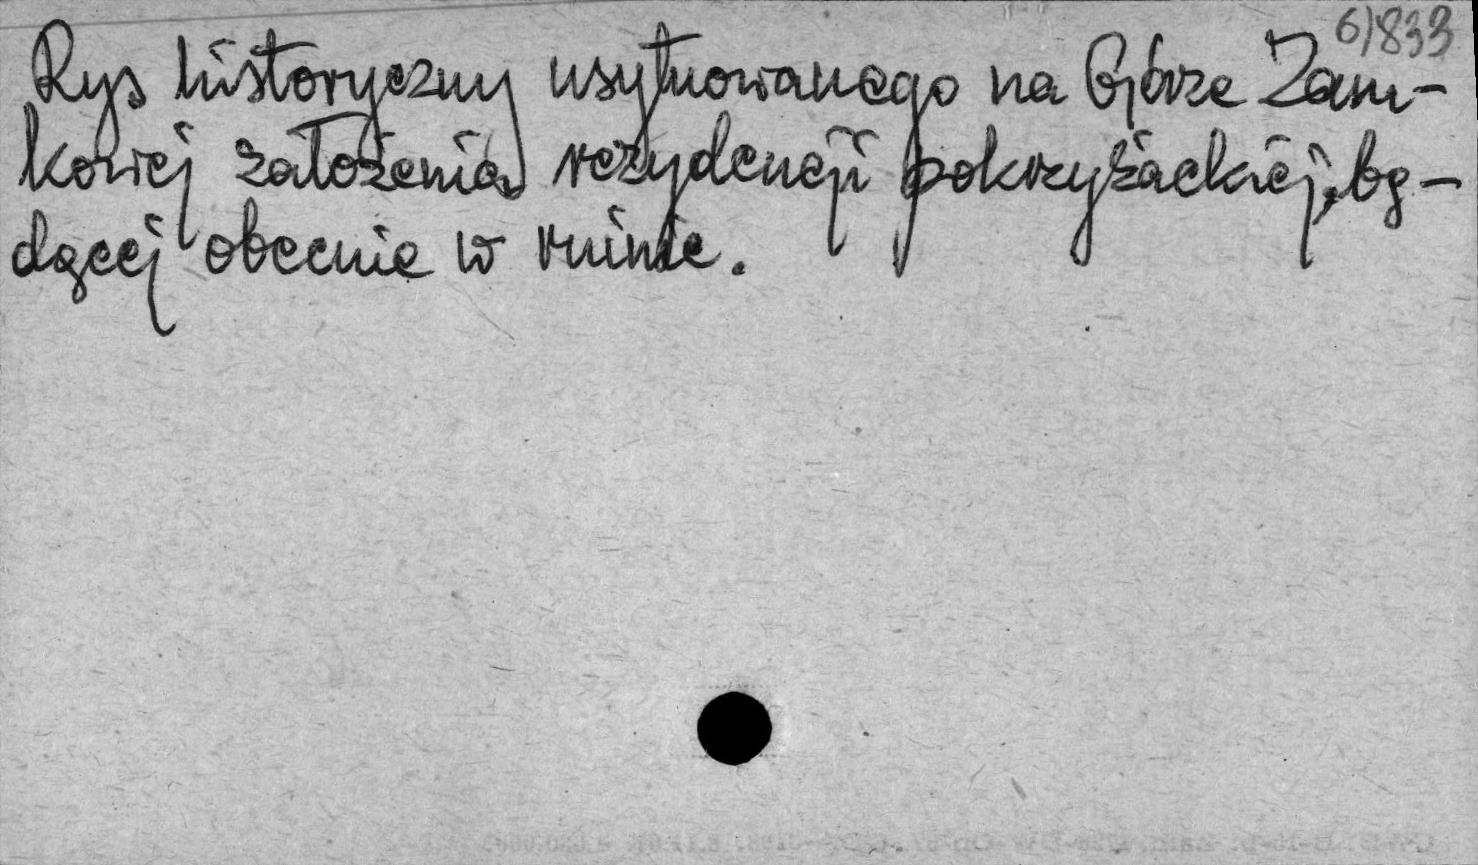 6/833
Rys historyczny usytuowanego na Górze Zam-
kowej założenia rezydencji pokrzyżackiej, bę-
dącej obecnie w ruinie.